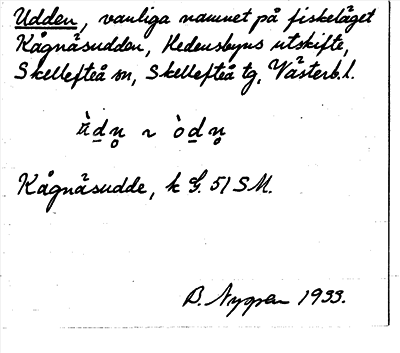 Udden, vanliga namnet på fiskeläget
Kågnäsudden, Hedensbyns utskifte,
Skellefteå sn, Skellefteå tg, Västerb. l.
ù̈d̲n̥ ~ òd̲n̥
Kågnäsudde, k G. 51 SM.
B. Nygren 1933.